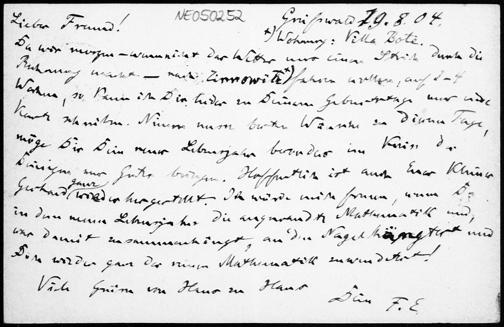 NE050252
Greifswald 19.8.04.
Lieber Freund!
+) Wohnung: Villa Bote.
Da wir morgen – wenn nicht das Wetter uns einen Strich durch die
Rechnung macht – nach Zinnowitz +) fahren wollen, auf 3–4
Wochen, so kann ich Dir leider zu Deinem Geburtstage nur eine
Karte schreiben. Nimm unsere besten Wünsche zu Deinem Tage,
möge Dir Dein neues Lebensjahr besonders im Kreise der
Deinigen nur Gutes bringen. Hoffentlich ist auch Euer kleiner
Gerhard ganz wiederhergestellt. Ich würde mich freuen, wenn Du
in dem neuen Lebensjahr die angewandte Mathematik und,
was damit zusammenhängt, an den Nagel hängtest und
Dich wieder ganz der reinen Mathematik zuwendetest!
Viele Grüsse von Haus zu Haus
Dein F. E.